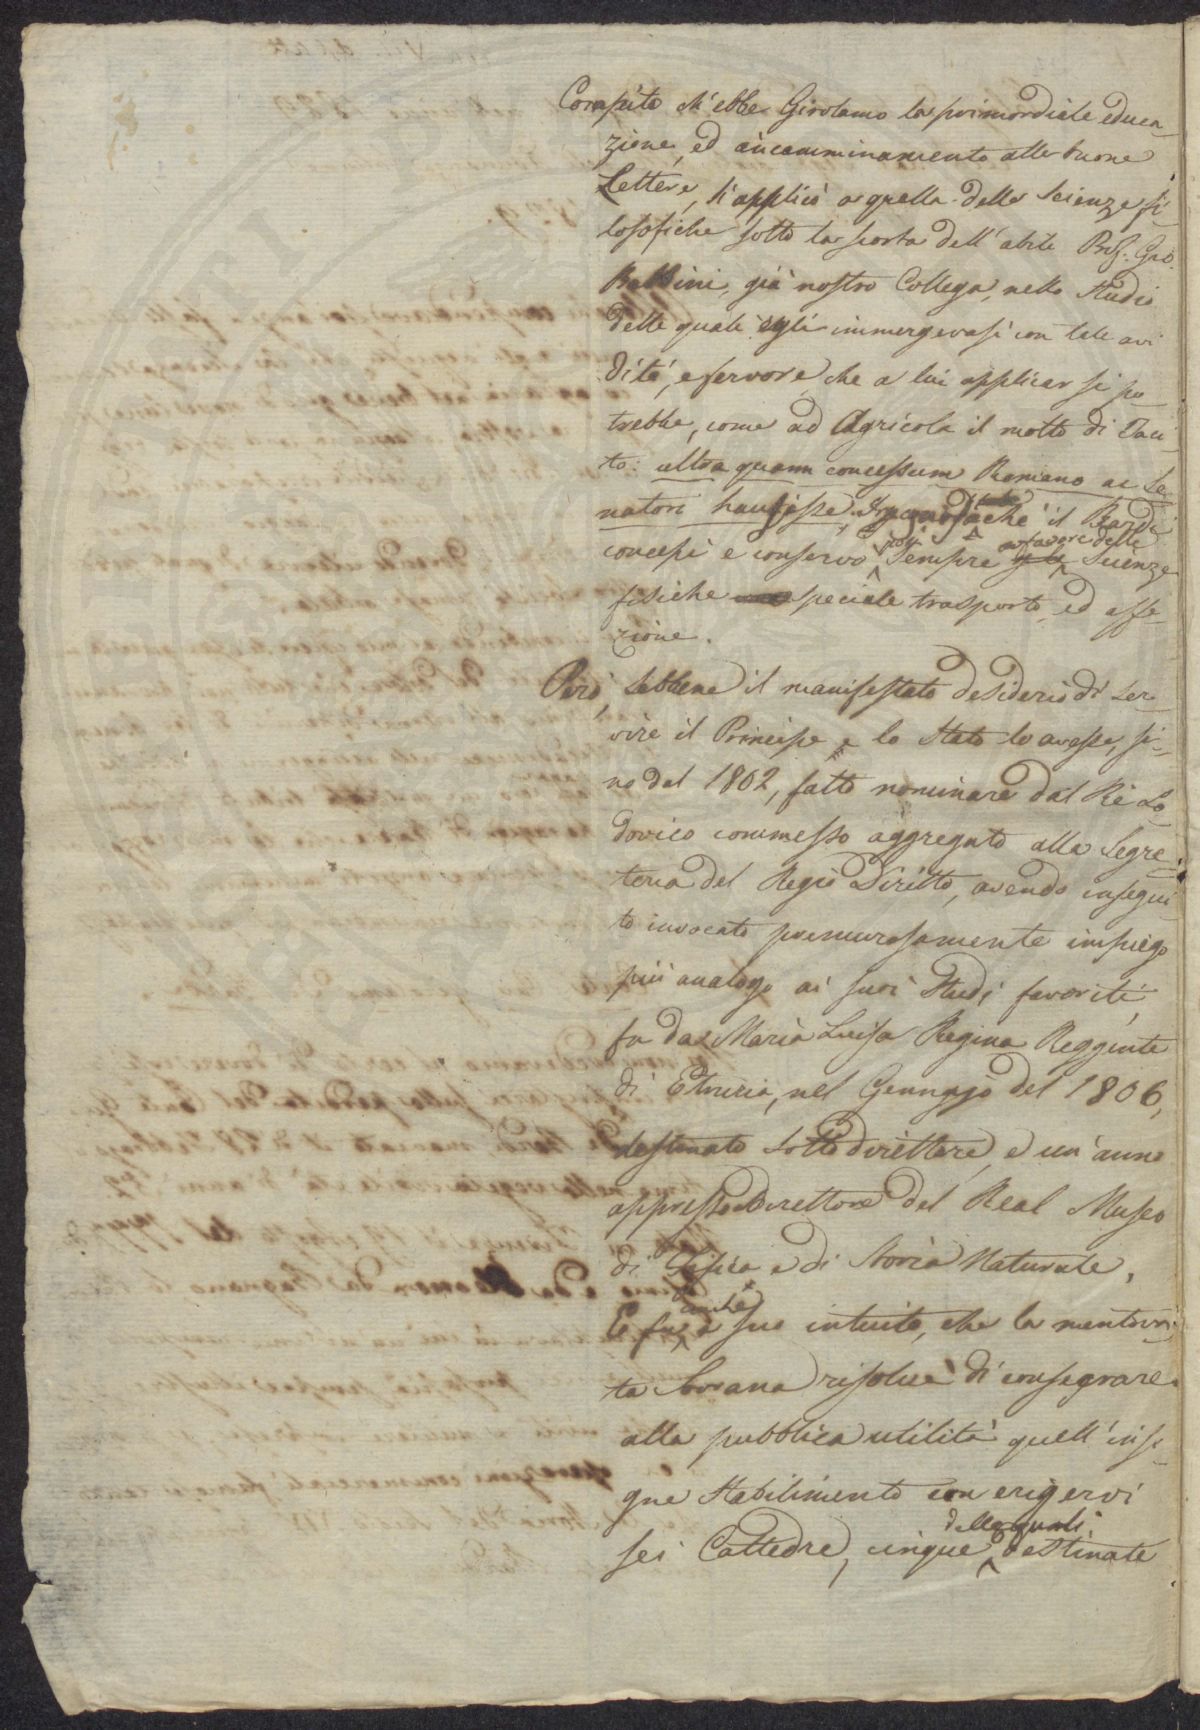 Compito ch'ebbe Girolamo la primordiale educa-
zione, ed incamminamento alle buone
Lettere, s'applicò a quella delle Scienze fi-
losofiche sotto la scorta dell'abile Prof. Gio.
Babbini, già nostro Collega, nello Studio
delle quali egli immergevasi con tale avi
dità, e fervore, che a lui applicar si po-
trebbe, come ad Agricola il motto di Taci
to: ultra quam concessum Romano ac Se
natori hausisse. che il Bardi
concepì e conservò poi sempre a favore delle Scienze
fisiche speciale trasporto, ed affe-
zione.
Però, sebbene il manifestato desiderio di ser-
vire il Principe e lo Stato lo avesse, si-
no dal 1802, fatto nominare dal Rè Lo
dovico commesso aggregato alla Segre-
teria del Regio Diritto, avendo insegui-
to invocato premurosamente impiego
più analogo ai suoi Studj favoriti,
fu da Maria Luisa Regina Reggente
di Etruria, nel Gennajo del 1806,
destinato Sotto direttore, e un'anno
appresso Direttore del Real Museo
di Fisica e di Storia Naturale.
E fu anche a suo intuito, che la mentova-
ta Sovrana risolvè di consegrare
alla pubblica utilità quell'insi-
gne Stabilimento con erigervi
sei Cattedre, cinque delle quali destinate